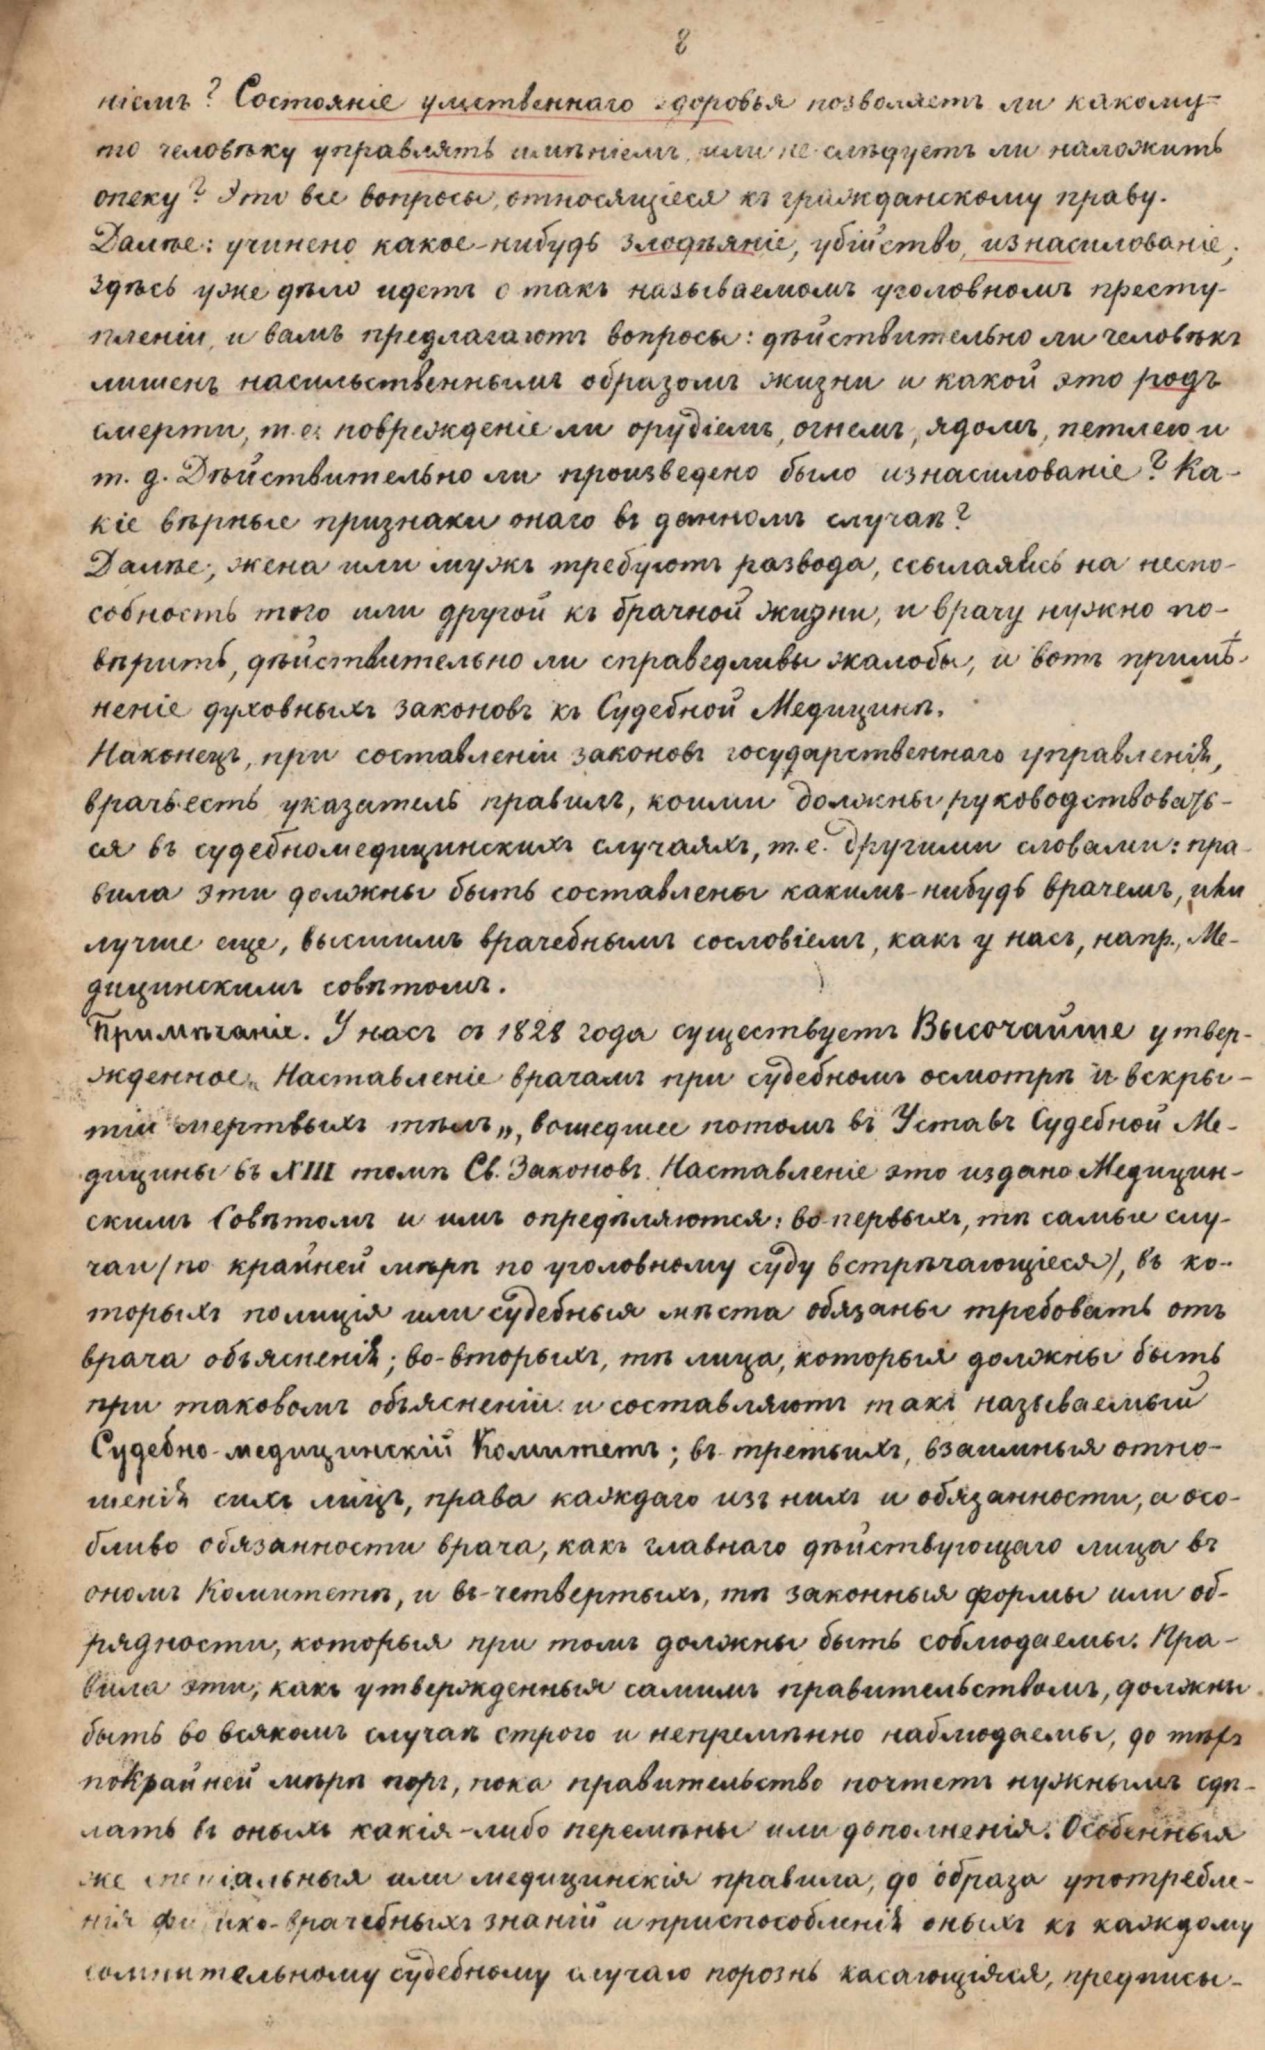 8
ніемъ? Состояніе умственнаго здоровья позволяетъ ли какому-
то человѣку управлять имѣніемъ, или не слѣдуетъ ли наложить
опеку? Это все вопросы, относящіеся къ гражданскому праву.
Далѣе: учинено какое-нибудь злодѣяніе, убійство, изнасилованіе;
здѣсь уже дѣло идетъ о такъ называемомъ уголовномъ престу-
пленіи, и вамъ предлагаютъ вопросы: дѣйствительно ли человѣкъ
лишенъ насильственнымъ образомъ жизни и какой это родъ
смерти, т.е. поврежденіе ли орудіемъ, огнемъ, ядомъ, петлею и
т. д. Дѣйствительно ли произведено было изнасилованіе? Ка-
кіе вѣрные признаки онаго въ данномъ случаѣ?
Далѣе, жена или мужъ требуютъ развода, ссылаясь на неспо-
собность того или другой къ брачной жизни, и врачу нужно по-
вѣрить, дѣйствительно ли справедливы жалобы, и вотъ примѣ-
неніе духовныхъ законовъ къ Судебной Медицинѣ.
Наконецъ, при составленіи законовъ государственнаго управленія,
врачъ есть указатель правилъ, коими должны руководствовать-
ся въ судебномедицинскихъ случаяхъ, т.е. другими словами: пра-
вила эти должны быть составлены какимъ-нибудь врачемъ, или
лучше еще, высшимъ врачебнымъ сословіемъ, какъ у насъ, напр., Ме-
дицинскимъ совѣтомъ.
Примѣчаніе. У насъ съ 1828 года существуетъ Высочайше утвер-
жденное „Наставленіе врачамъ при судебномъ осмотрѣ и вскры-
тіи мертвыхъ тѣлъ„, вошедшее потомъ въ Уставъ Судебной Ме-
дицины въ XIII томѣ Св. Законовъ. Наставленіе это издано Медицин-
скимъ Совѣтомъ и имъ опредѣляются: во-первыхъ, тѣ самые слу-
чаи (по крайней мѣрѣ по уголовному суду встрѣчающіеся), въ ко-
торыхъ полиція или судебныя мѣста обязаны требовать отъ
врача объясненія; во-вторыхъ, тѣ лица, которыя должны быть
при таковомъ объясненіи и составляютъ такъ называемый
Судебно-медицинскій Комитетъ; въ-третьихъ, взаимныя отно-
шенія сихъ лицъ, права каждаго изъ нихъ и обязанности, а осо-
бливо обязанности врача, какъ главнаго дѣйствующаго лица въ
ономъ Комитетѣ, и въ-четвертыхъ, тѣ законныя формы или об-
рядности, которыя при томъ должны быть соблюдаемы. Пра-
вила эти, какъ утвержденныя самимъ правительствомъ, должны
быть во всякомъ случаѣ строго и непремѣнно наблюдаемы, до тѣхъ
покрайней мѣрѣ поръ, пока правительство почтетъ нужнымъ сдѣ-
лать въ оныхъ какія-либо перемѣны или дополненія. Особенныя
же спеціальныя или медицинскія правила, до образа употребле-
нія физико-врачебныхъ знаній и приспособленія оныхъ къ каждому
сомнительному судебному случаю порознь касающіяся, предписы-